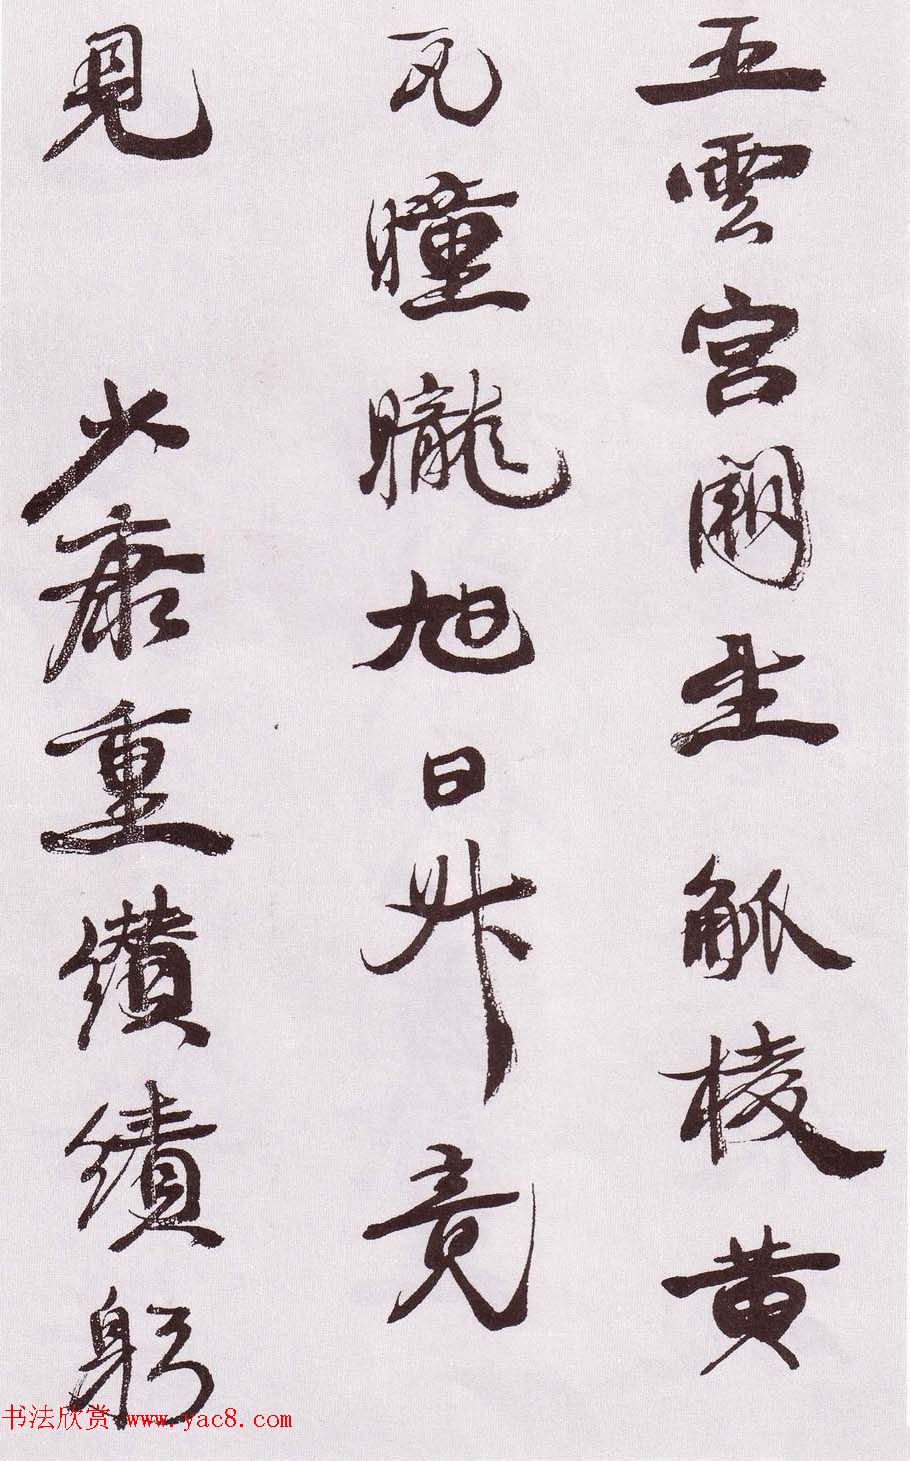 五雲宮闕觚棱黃
瓦曈曨旭日升竟
見 少康重纘績躬
书法欣赏 www.yac8.com